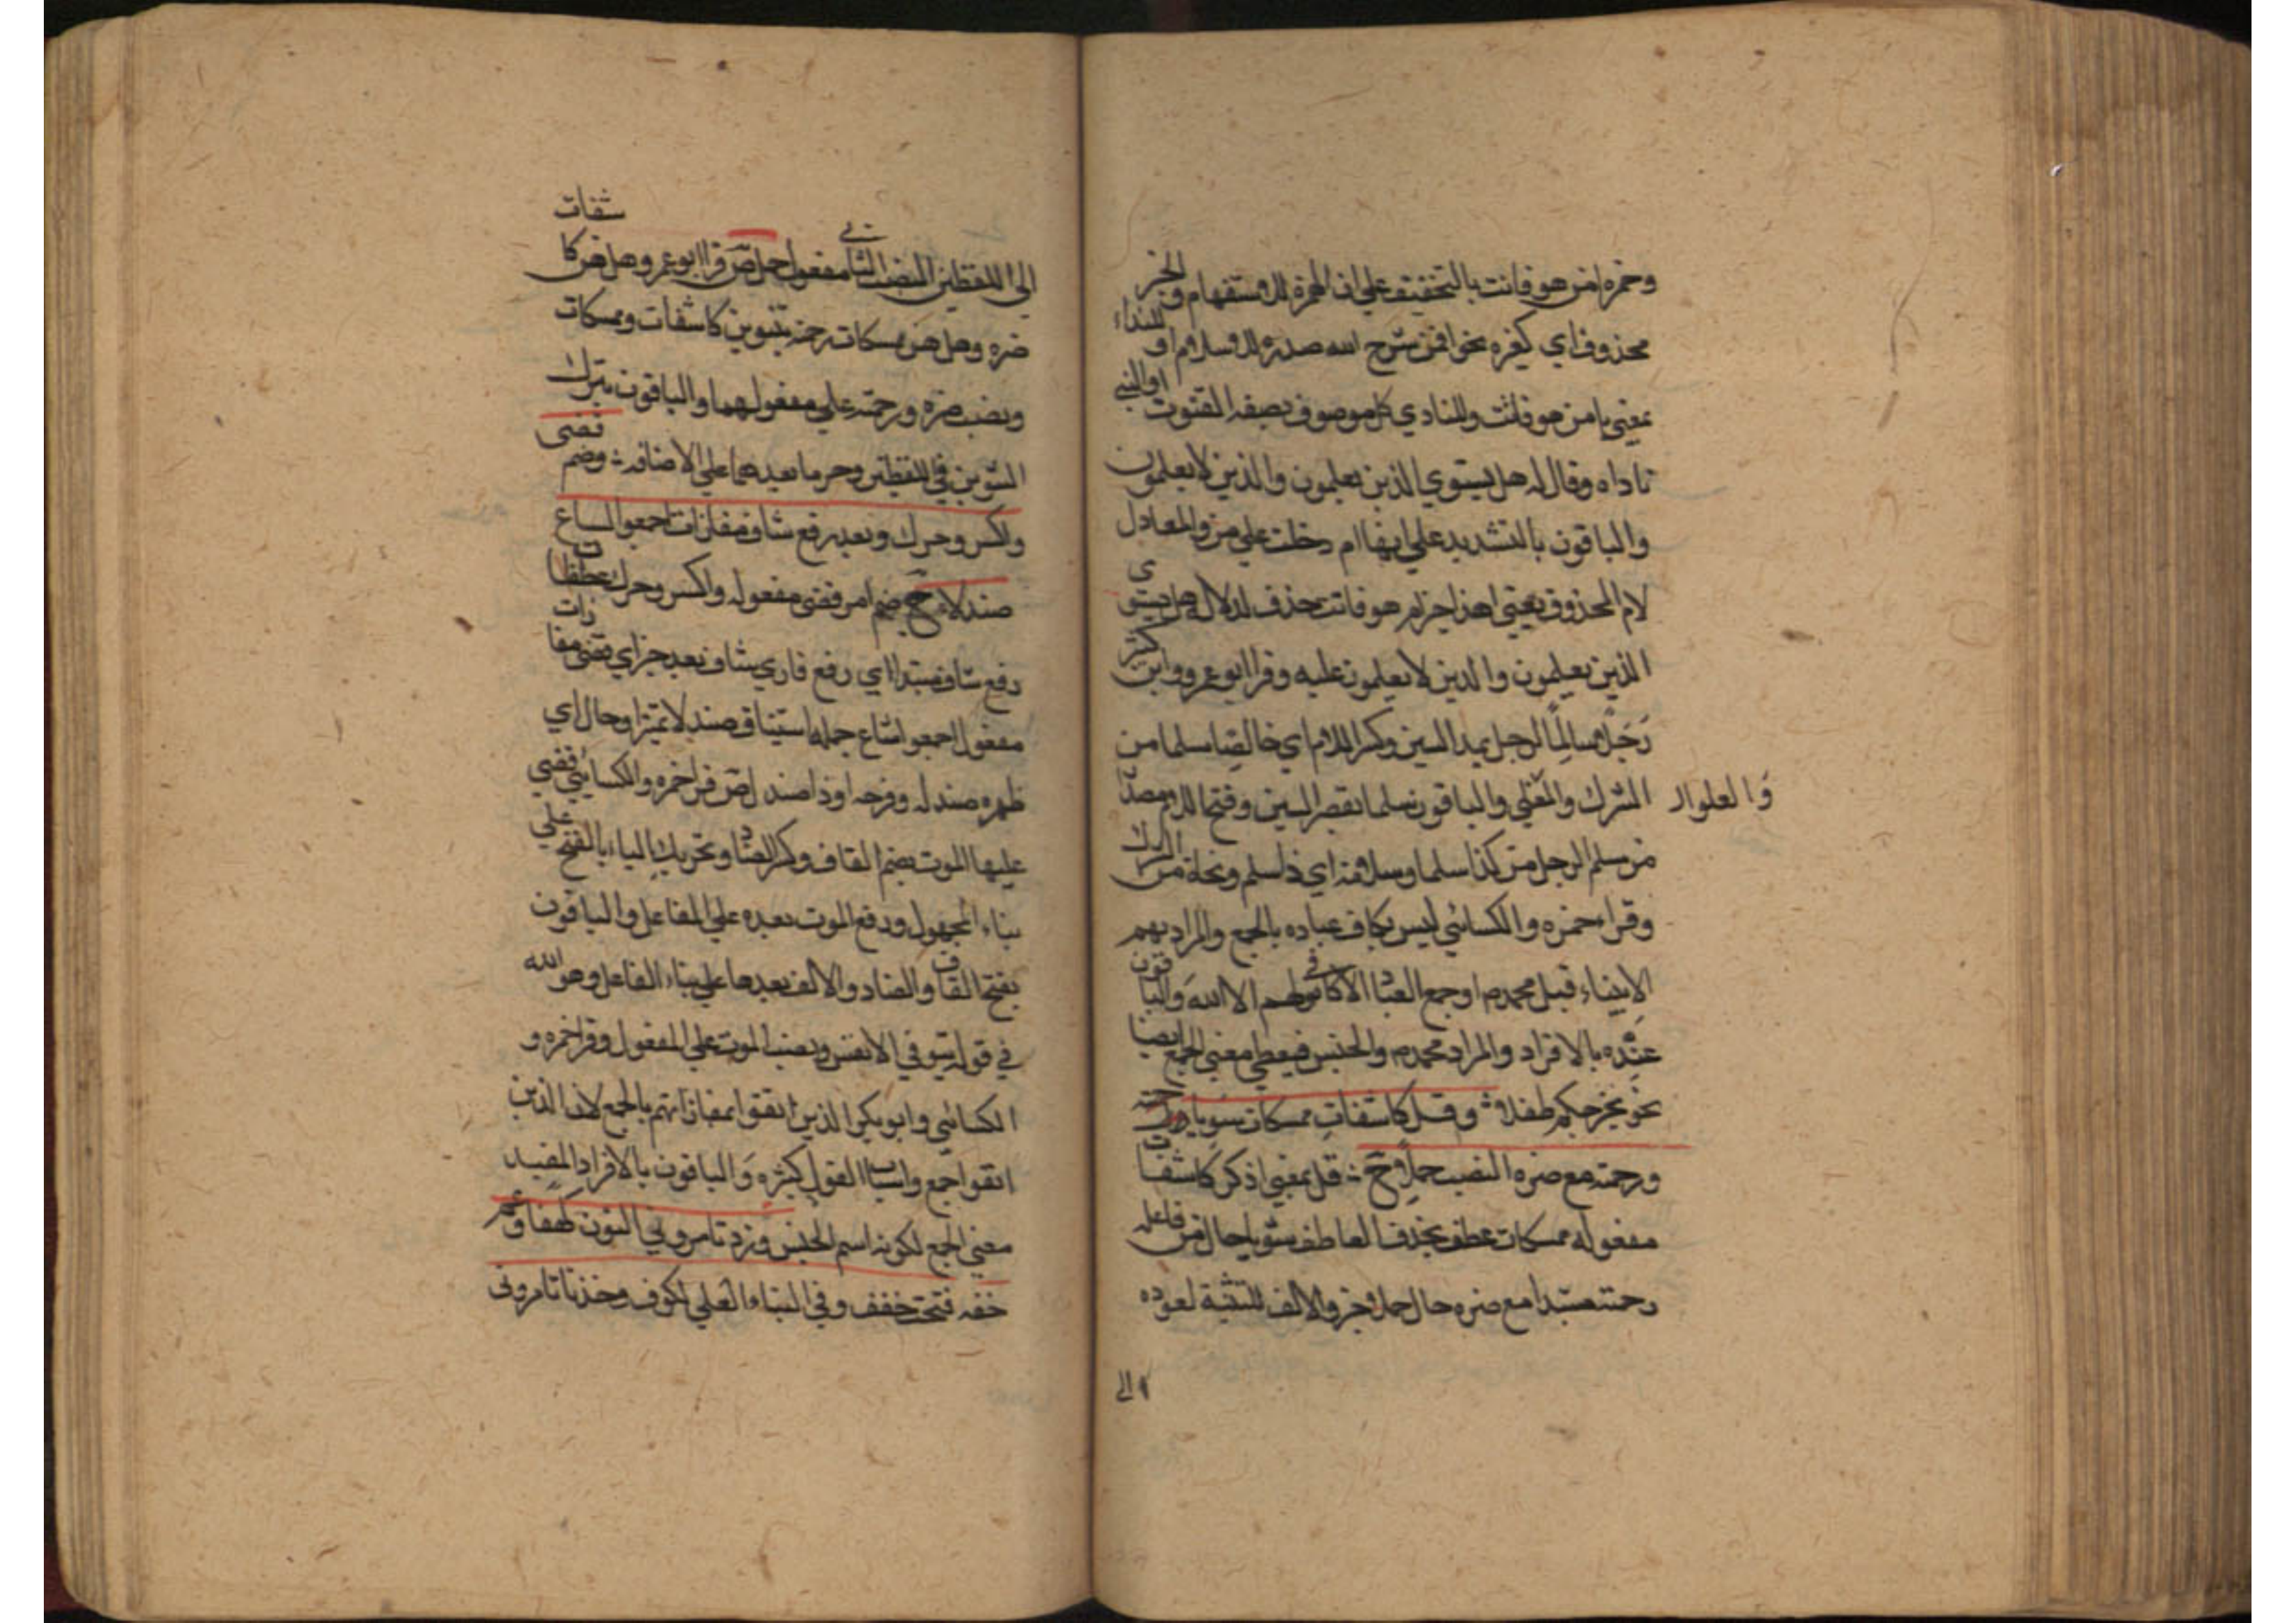 وحمزه امن هو قانت بالتخفيف علي ان الهمزة للاستفهام والخبر
محذوف اي كغيره نحو افمن شرح الله صدره للاسلام او للنداء
بمعني يا من هو قانت والمنادي كل موصوف بصفه القنوت او النبي
ناداه وقال له هل يستوي الذين يعلمون والذين لا يعلمون
والباقون بالتشديد علي انها ام دخلت علي من والمعادل
لام المحذوف يعني اهذا خير ام هو قانت حذف لدلاله هل يستوي
الذين يعلمون والذين لا يعلمون عليه وقرا ابو عمرو وابن كثير
رَجُلًا سالِمًا لرجل بمد السين وكسر اللام اي خالصا سلما من
الشرك والباقون سلما بقصر السين وفتح اللام مصدر
وَالعلوال
من سلم الرجل من كذا سلما وسلامة اي ذا سلم ونجاة من الشرك
وقرا حمزه والكسائي اليس بكاف عباده بالجمع والمراد بهم
الانبياء قبل محمدم او جمع العباد الاكافي لهم الا الله وَالباقون
عبده بالافراد والمراد محمدم والجنس فيعطي معني الجمع ايضا
نحو يخرجكم طفلا ؞ وقل كاشفات ممسكات منونا ورحمته
ورحمته مع ضره النصب حملا ح ؞ قل بمعني اذكر كاشفات
مفعوله ممسكات عطف بحذف العاطف منونا حال من فاعله
رحمته مبتدا مع ضره حال حملا خبر والالف للتثنية لعوده
الي
الي اللفظين النصب الثاني مفعول حملا ص قرا ابو عمرو هل هن كاشفات
ضره وهل هن ممسكات رحمته بتنوين كاشفات وممسكات
ونصب ضره ورحمته علي مفعولهما والباقون بترك
التنوين في اللفظين وجر ما بعدهما علي الاضافه ؞ وضم قضي
واكسر وحرك وبعد رفع شاف مفازات اجمعوا شاع
صندلا ح ضم امر قضي مفعوله واكسر وحرك عطفا
رفع شاف مبتدا اي رفع قاري شاف بعد خبر اي قضي مفازات
مفعول اجمعوا شاع جمله استيناف صندلا تميز او حال اي
ظهره صندله وفرحه او ذا صندل ص قرا حمزه والكسائي قضي
عليها الموت بضم القاف وكسر الضاد وتحريك الياء بالفتح علي
بناء المجهول ورفع الموت بعده علي الفاعل والباقون
بفتح القاف والضاد والالف بعدها علي بناء الفاعل وهو الله
في قوله يتوفي الانفس ونصب الموت علي المفعول وقرا حمزه و
الكسائي وابو بكر الذين اتقوا بمفازاتهم بالجمع لان الذين
اتقوا جمع واسباب الفوز كثيره وَالباقون بالافراد المفيد
معني الجمع لكونه اسم الجنس وزد تامروني النون كهفا وعم
خفه فتحت خفف وفي النباء العلي لكوف وخذ يا تامروني